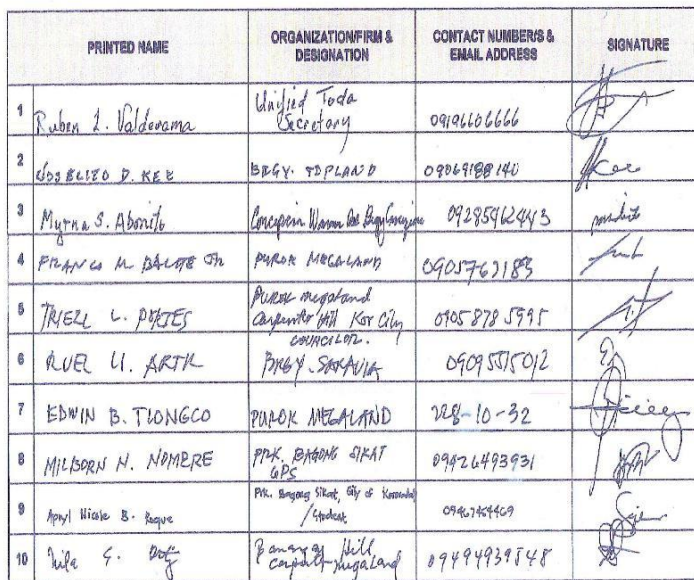 PRINTED NAME
ORGANIZATION/FIRM & DESIGNATION
CONTACT NUMBER/S & EMAIL ADDRESS
SIGNATURE
1 Ruben L. Valderama Unified Toda Secretary 09196606666
2 D. KEE BRGY. TOPLAND 09069188140
3 Myrna S. Abonito Concepcion 09285962443
4 FRANCO M. JR PUROK MEGALAND 09057631
5 L. PUROK megaland Carpenter Hill Kor City 09058785995
6 RUEL U. COUNCILOR. BRGY. SARAVIA 09095515012
7 EDWIN B. TIONGCO PUROK MEGALAND 228-10-32
8 MILBORN N. NOMBRE PRK. BAGONG SIKAT GPS 09426493931
9 April Nicole B. Roque Prk. Bagong Sikat, City of Koronadal / Student 09467454469
10 Hill megaland 09494939548